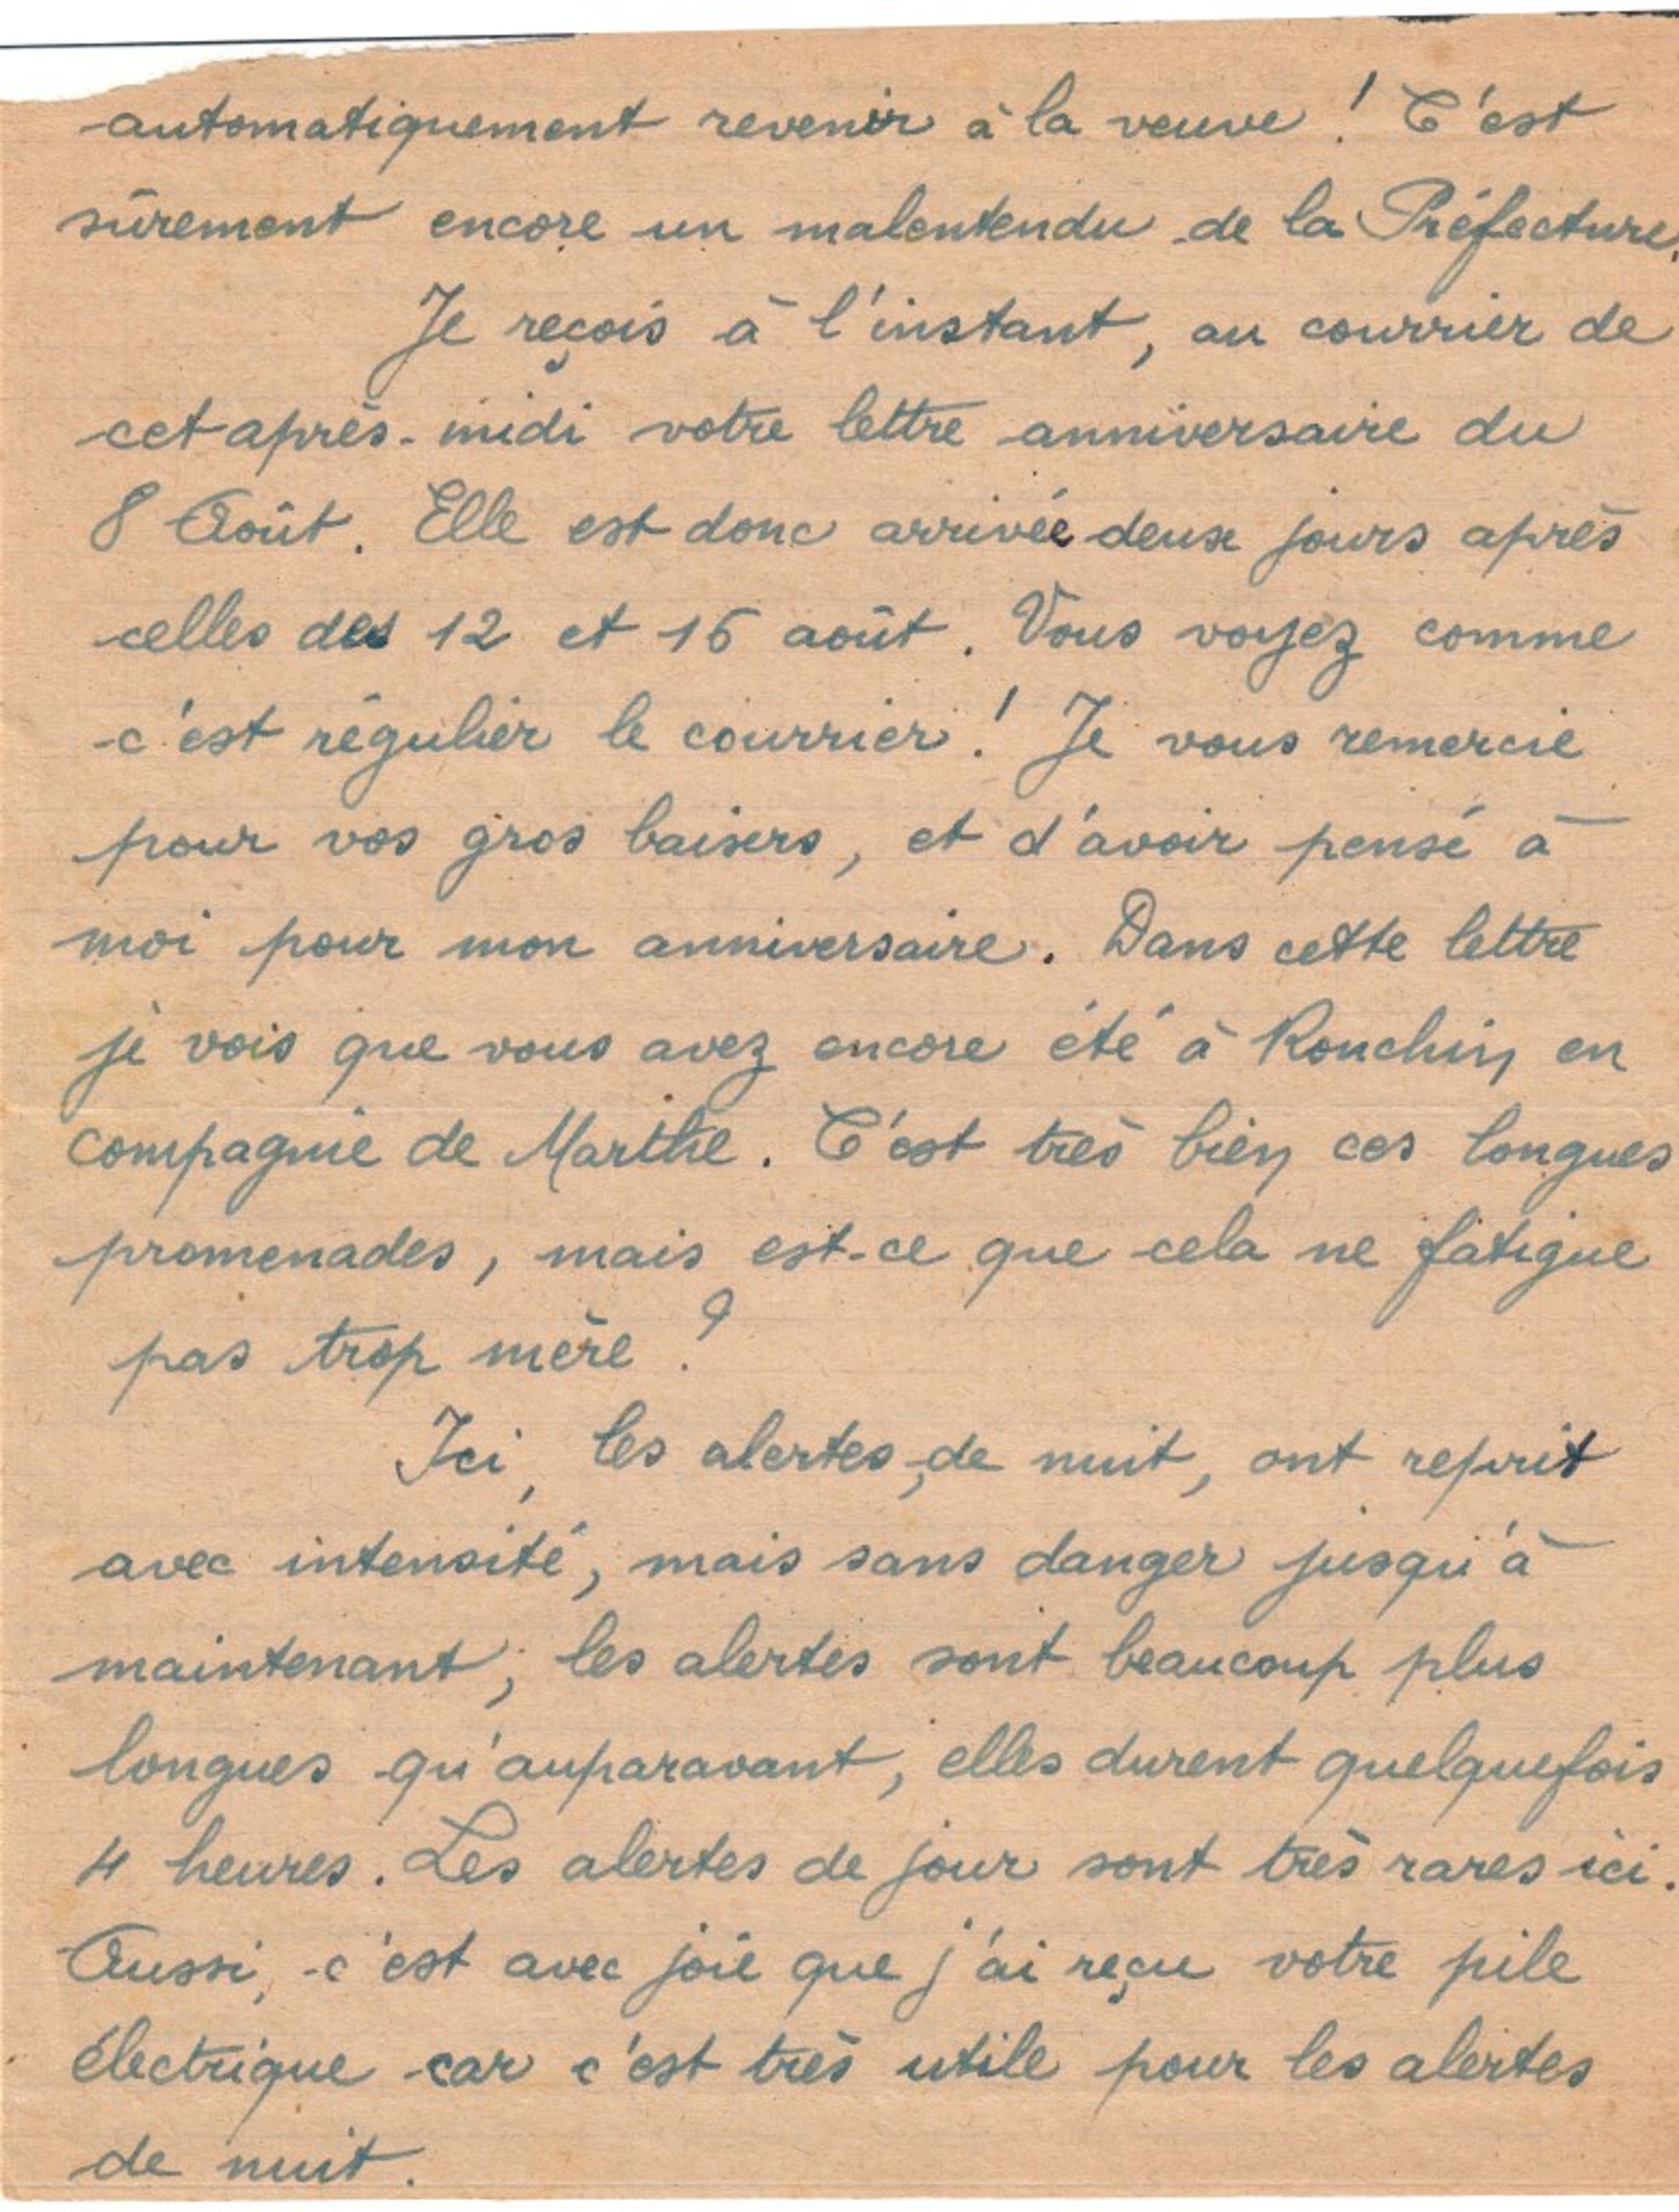 automatiquement revenir à la veuve ! C'est
sûrement encore un malentendu de la Préfecture.
Je reçois à l'instant, au courrier de
cet après-midi votre lettre anniversaire du
8 Août. Elle est donc arrivée deux jours après
celles des 12 et 15 août. Vous voyez comme
c'est régulier le courrier ! Je vous remercie
pour vos gros baisers, et d'avoir pensé à
moi pour mon anniversaire. Dans cette lettre
je vois que vous avez encore été à Ronchin en
compagnie de Marthe. C'est très bien ces longues
promenades, mais est-ce que cela ne fatigue
pas trop mère ?
Ici, les alertes, de nuit, ont reprit
avec intensité, mais sans danger jusqu'à
maintenant ; les alertes sont beaucoup plus
longues qu'auparavant, elles durent quelquefois
4 heures. Les alertes de jour sont très rares ici.
Aussi, c'est avec joie que j'ai reçu votre pile
électrique car c'est très utile pour les alertes
de nuit.